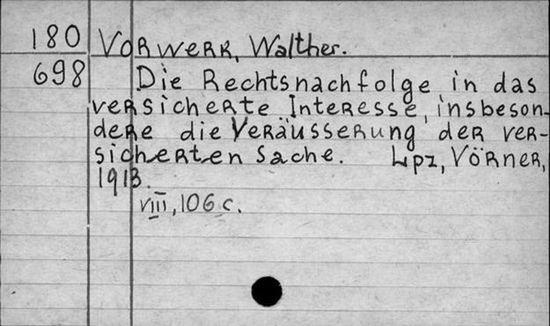 180 Vorwerk, Walther.
698 Die Rechtsnachfolge in das
versicherte Interesse, insbeson-
dere die Veräusserung der ver-
sicherten Sache. Lpz, Vörner,
1913.
VIII, 106 c.